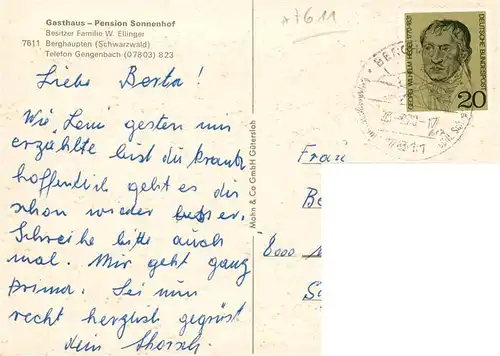 Gasthaus – Pension Sonnenhof
Besitzer Familie W. Ellinger
7611 Berghaupten (Schwarzwald)
Telefon Gengenbach (07803) 823
Liebe Berta!
Wie Leni gestern uns
erzählte bist du krank
hoffentlich geht es dir
schon wieder besser.
Schreibe bitte auch
mal. Mir geht ganz
prima. Sei nun
recht herzlich gegrüst
dein Schorsch.
Mohn & Co GmbH Gütersloh
7611
GEORG WILHELM HEGEL 1770-1831
DEUTSCHE BUNDESPOST
20
Frau
Be
8000